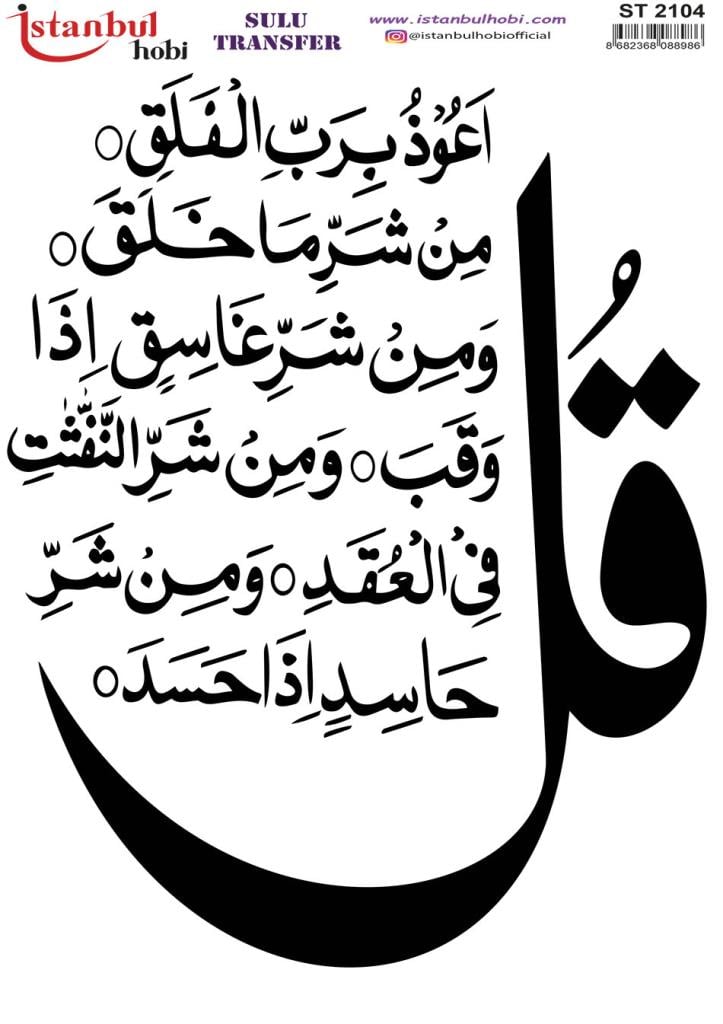 istanbul hobi
SULU TRANSFER
www.istanbulhobi.com
@istanbulhobiofficial
ST 2104
8 682368 088986
قُل
اَعُوْذُ بِرَبِّ الْفَلَقِ ○
مِنْ شَرِّ مَا خَلَقَ ○
وَمِنْ شَرِّ غَاسِقٍ اِذَا
وَقَبَ ○ وَمِنْ شَرِّ النَّفّٰثٰتِ
فِي الْعُقَدِ ○ وَمِنْ شَرِّ
حَاسِدٍ اِذَا حَسَدَ ○